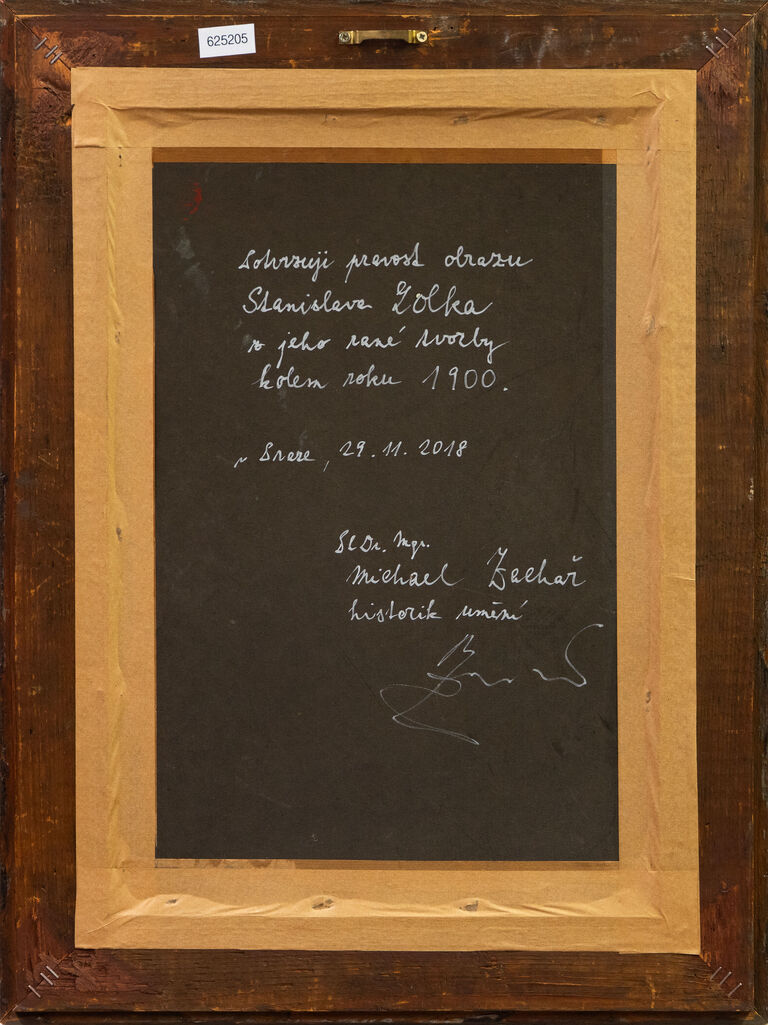 625205
Potvrzuji pravost obrazu
Stanislava Lolka
z jeho rané tvorby
kolem roku 1900.
v Praze, 29.11.2018
PhDr. Mgr.
Michael Zachař
historik umění